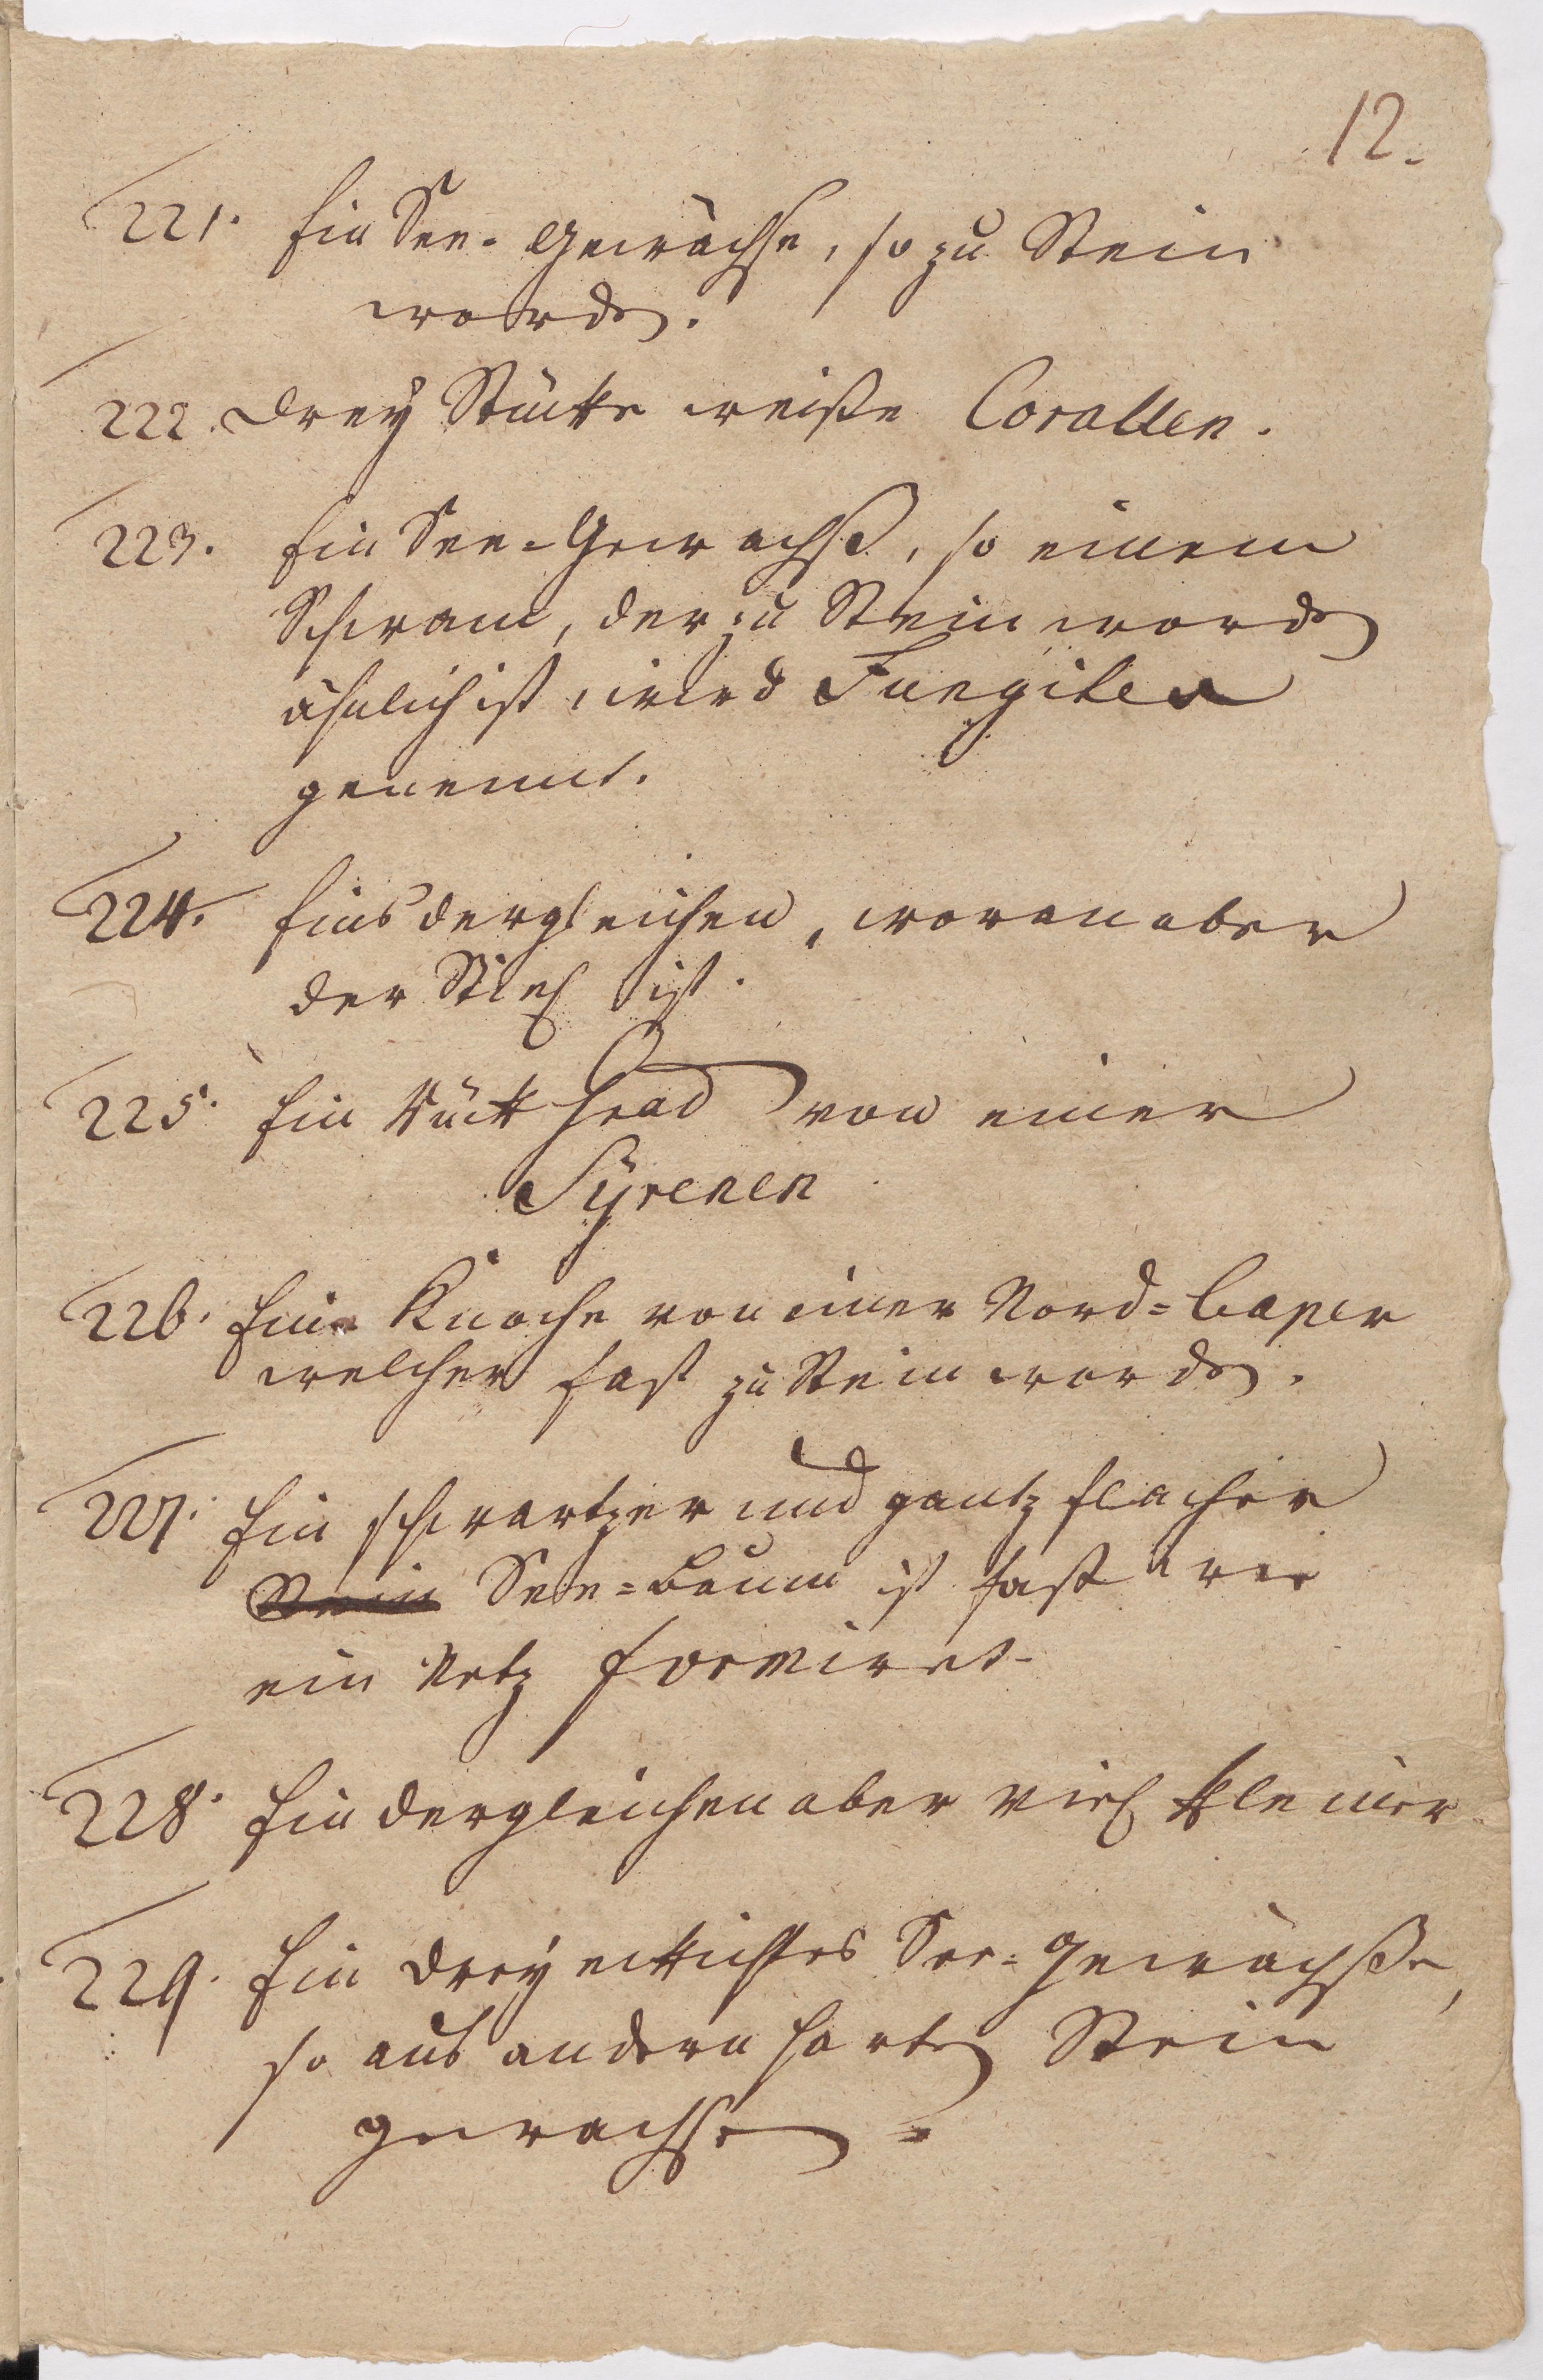 12.
221. Ein See-Gewächse, so zu Stein
worden.
222. Drey Stücke weiße Corallen.
223. Ein See-Gewachß, so einem
Schwam, der zu Stein worden
ähnlich ist, wird Fungites
genennt.
224. Eins dergleichen, woran aber
der Stiel ist.
225. Ein Rück Grad von einer
Syrenen
226. Ein Knoche von einer Nord-Caper
welcher fast zu Stein worden.
227. Ein schwartzer und gantz flacher
Stein See-Baum ist fast wie
ein Netz formiret.
228. Ein dergleichen aber viel kleiner
229. Ein dreyeckichtes See-Gewächße,
so aus andern harten Stein
gewachsen.